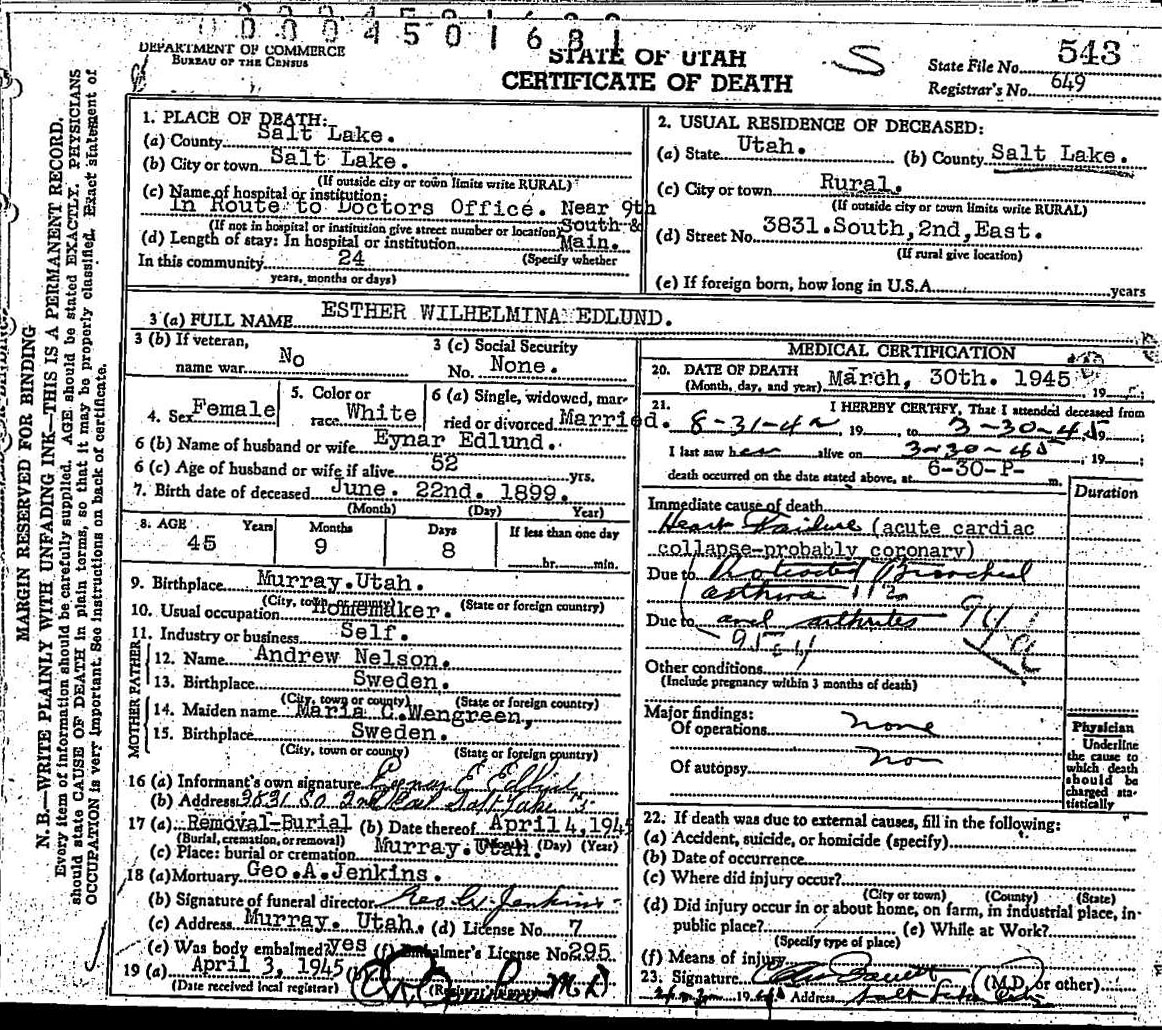 0004501681
DEPARTMENT OF COMMERCE
BUREAU OF THE CENSUS
STATE OF UTAH
CERTIFICATE OF DEATH
S
State File No. 543
Registrar's No. 649
MARGIN RESERVED FOR BINDING
N. B.—WRITE PLAINLY WITH UNFADING INK—THIS IS A PERMANENT RECORD.
Every item of information should be carefully supplied. AGE should be stated EXACTLY. PHYSICIANS
should state CAUSE OF DEATH in plain terms, so that it may be properly classified. Exact statement of
OCCUPATION is very important. See instructions on back of certificate.
1. PLACE OF DEATH:
(a) County Salt Lake.
(b) City or town Salt Lake.
(If outside city or town limits write RURAL)
(c) Name of hospital or institution:
In Route to Doctors Office. Near 9th
(If not in hospital or institution give street number or location) South &
(d) Length of stay: In hospital or institution Main.
In this community 24 (Specify whether
years, months or days)
2. USUAL RESIDENCE OF DECEASED:
(a) State Utah. (b) County Salt Lake.
(c) City or town Rural.
(If outside city or town limits write RURAL)
(d) Street No. 3831.South,2nd,East.
(If rural give location)
(e) If foreign born, how long in U.S.A. years
3 (a) FULL NAME ESTHER WILHELMINA EDLUND.
3 (b) If veteran,
name war No
3 (c) Social Security
No. None.
4. Sex Female
5. Color or
race White
6 (a) Single, widowed, mar-
ried or divorced. Married.
6 (b) Name of husband or wife Eynar Edlund.
6 (c) Age of husband or wife if alive 52 yrs.
7. Birth date of deceased June. 22nd. 1899.
(Month) (Day) Year)
8. AGE Years Months Days If less than one day
45 9 8 hr. min.
9. Birthplace Murray.Utah.
(City, town or county) (State or foreign country)
10. Usual occupation Homemaker.
11. Industry or business Self.
FATHER
12. Name Andrew Nelson.
13. Birthplace Sweden.
(City, town or county) (State or foreign country)
MOTHER
14. Maiden name Maria C.Wengreen,
15. Birthplace Sweden.
(City, town or county) (State or foreign country)
16 (a) Informant's own signature Eynar E Edlund
(b) Address 3831 So 2nd East Salt Lake 5
17 (a) Removal-Burial (b) Date thereof April 4,1945
(Burial, cremation, or removal) (Month) (Day) (Year)
(c) Place: burial or cremation Murray.Utah.
18 (a) Mortuary Geo.A.Jenkins.
(b) Signature of funeral director Geo A Jenkins
(c) Address Murray. Utah. (d) License No. 7
(e) Was body embalmed? yes (f) Embalmer's License No. 295.
19 (a) April 3, 1945 (b) M.D.
(Date received local registrar) (Registrar's signature)
MEDICAL CERTIFICATION
20. DATE OF DEATH
(Month, day, and year) March, 30th. 1945 19
21. I HEREBY CERTIFY, That I attended deceased from
8-31-42 19 , to 3-30-45 19 ;
I last saw her alive on 3-30-45 , 19 ;
death occurred on the date stated above, at 6-30-P- m.
Duration
Immediate cause of death
Heart Failure (acute cardiac
collapse-probably coronary)
Due to Protracted Bronchial
asthma 112
Due to and arthritis 94a
95
Other conditions
(Include pregnancy within 3 months of death)
Major findings:
Of operations none
Of autopsy no
Physician
Underline
the cause to
which death
should be
charged sta-
tistically
22. If death was due to external causes, fill in the following:
(a) Accident, suicide, or homicide (specify)
(b) Date of occurrence
(c) Where did injury occur?
(City or town) (County) (State)
(d) Did injury occur in or about home, on farm, in industrial place, in-
public place? (e) While at Work?
(Specify type of place)
(f) Means of injury
23. Signature (M.D. or other)
19 Address Salt Lake City